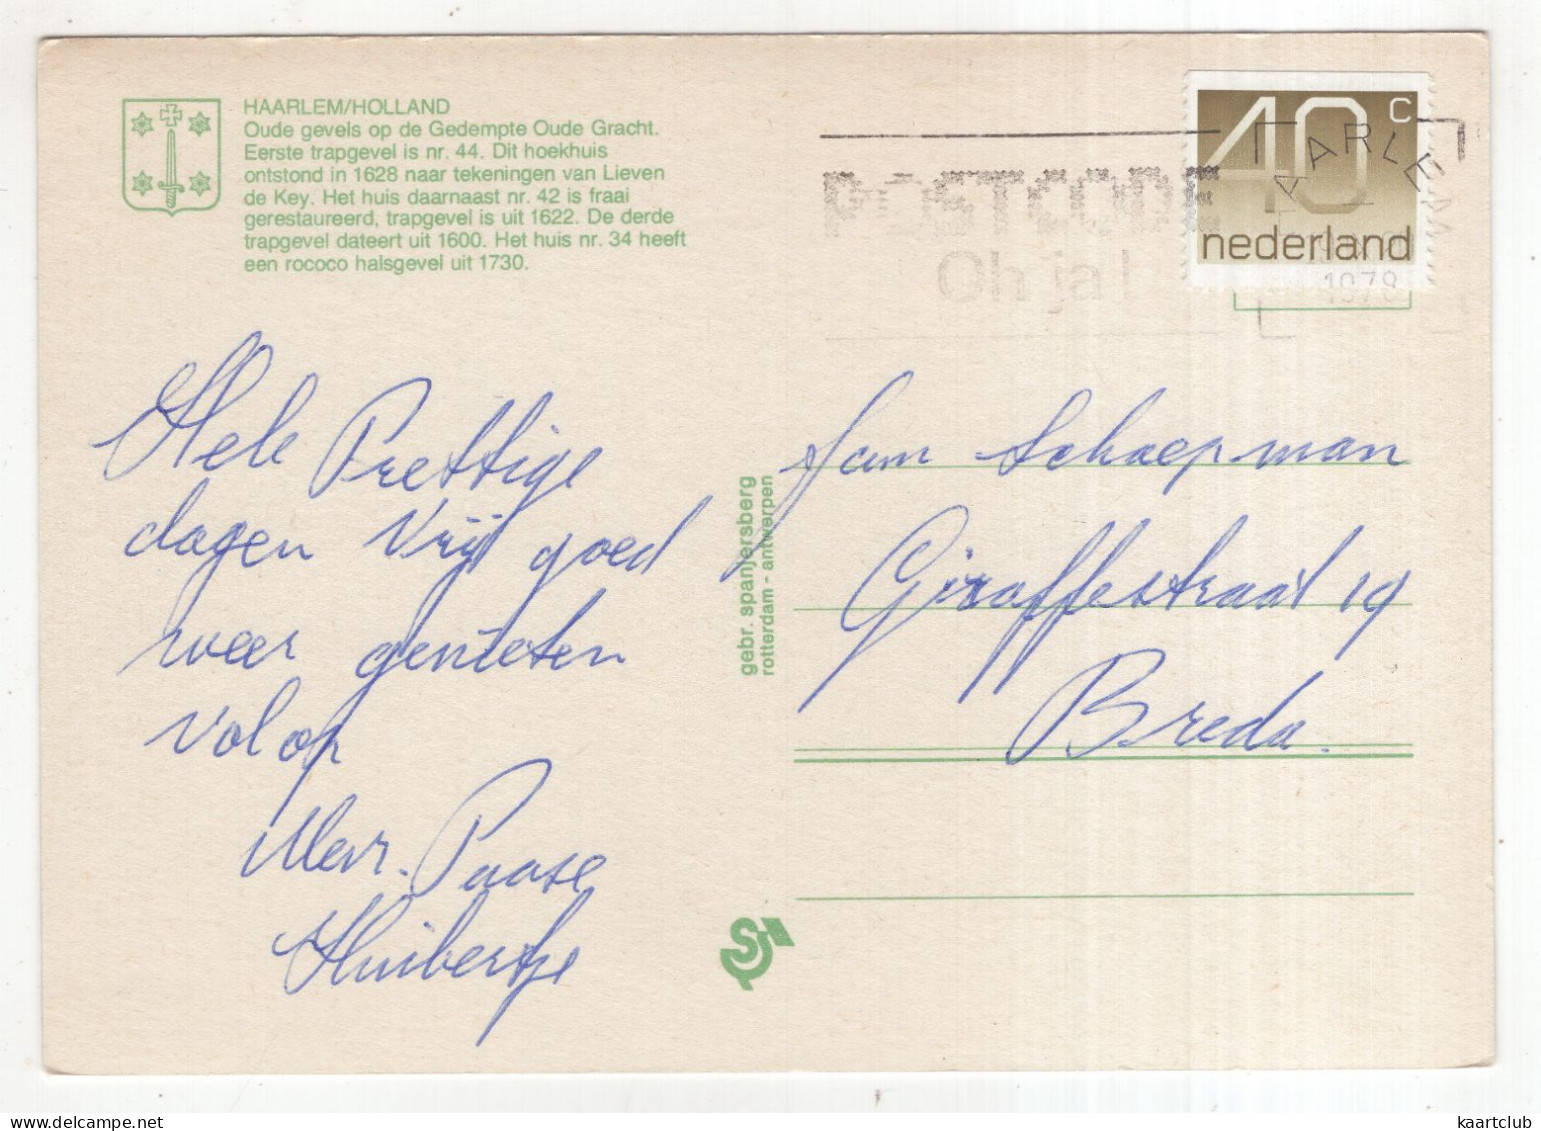 HAARLEM/HOLLAND
Oude gevels op de Gedempte Oude Gracht.
Eerste trapgevel is nr. 44. Dit hoekhuis
ontstond in 1628 naar tekeningen van Lieven
de Key. Het huis daarnaast nr. 42 is fraai
gerestaureerd, trapgevel is uit 1622. De derde
trapgevel dateert uit 1600. Het huis nr. 34 heeft
een rococo halsgevel uit 1730.
POSTCODE
Oh ja!
40 c
nederland
HAARLEM
Hele Prettige
dagen Vrijt goed
weer genieten
vol op
Mevr. Paase
Huibertje
gebr. spanjersberg
rotterdam - antwerpen
Fam Schaepman
Giraffestraat 19
Breda.
kaartclub